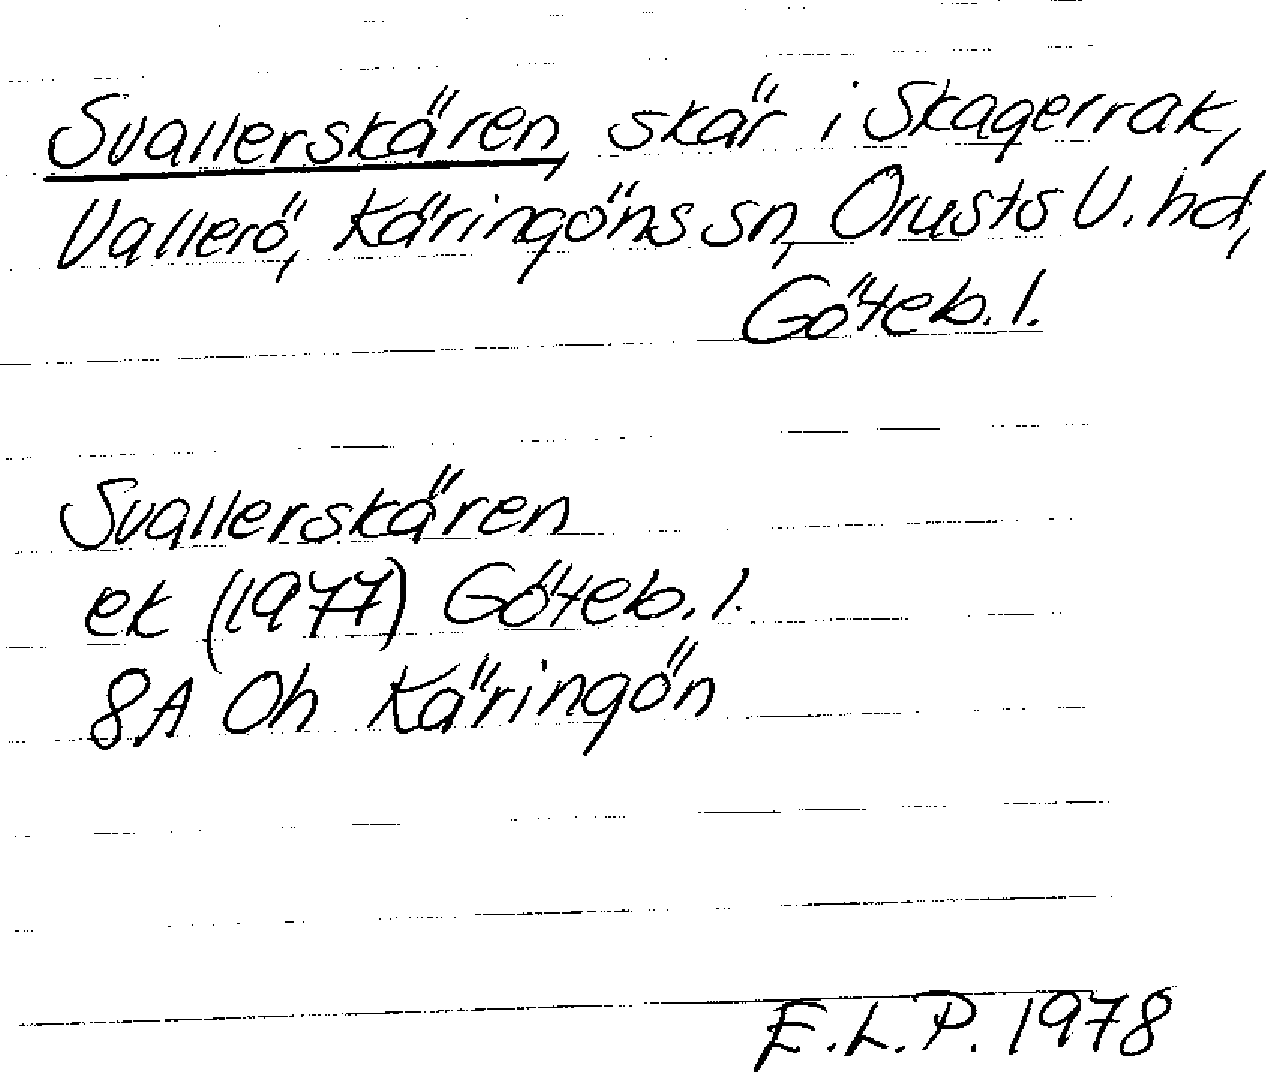 Svallerskären, skär i Skagerrak,
Vallerö, Käringöns sn, Orusts V. hd,
Göteb. l.
Svallerskären
ek (1977) Göteb. l.
8A 0h Käringön
E.L.P. 1978